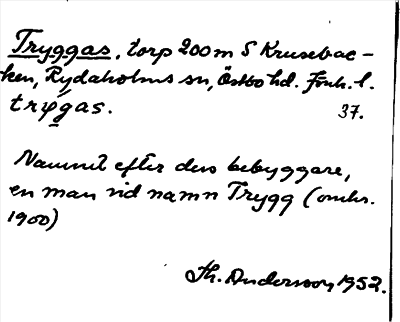 Tryggas, torp 200 m S Krusebac-
ken, Rydaholms sn, Östbo hd. Jönk. l.
trýgas. 37.
Namnet efter dess bebyggare,
en man vid namn Trygg (omkr.
1900)
Th. Andersson 1952.